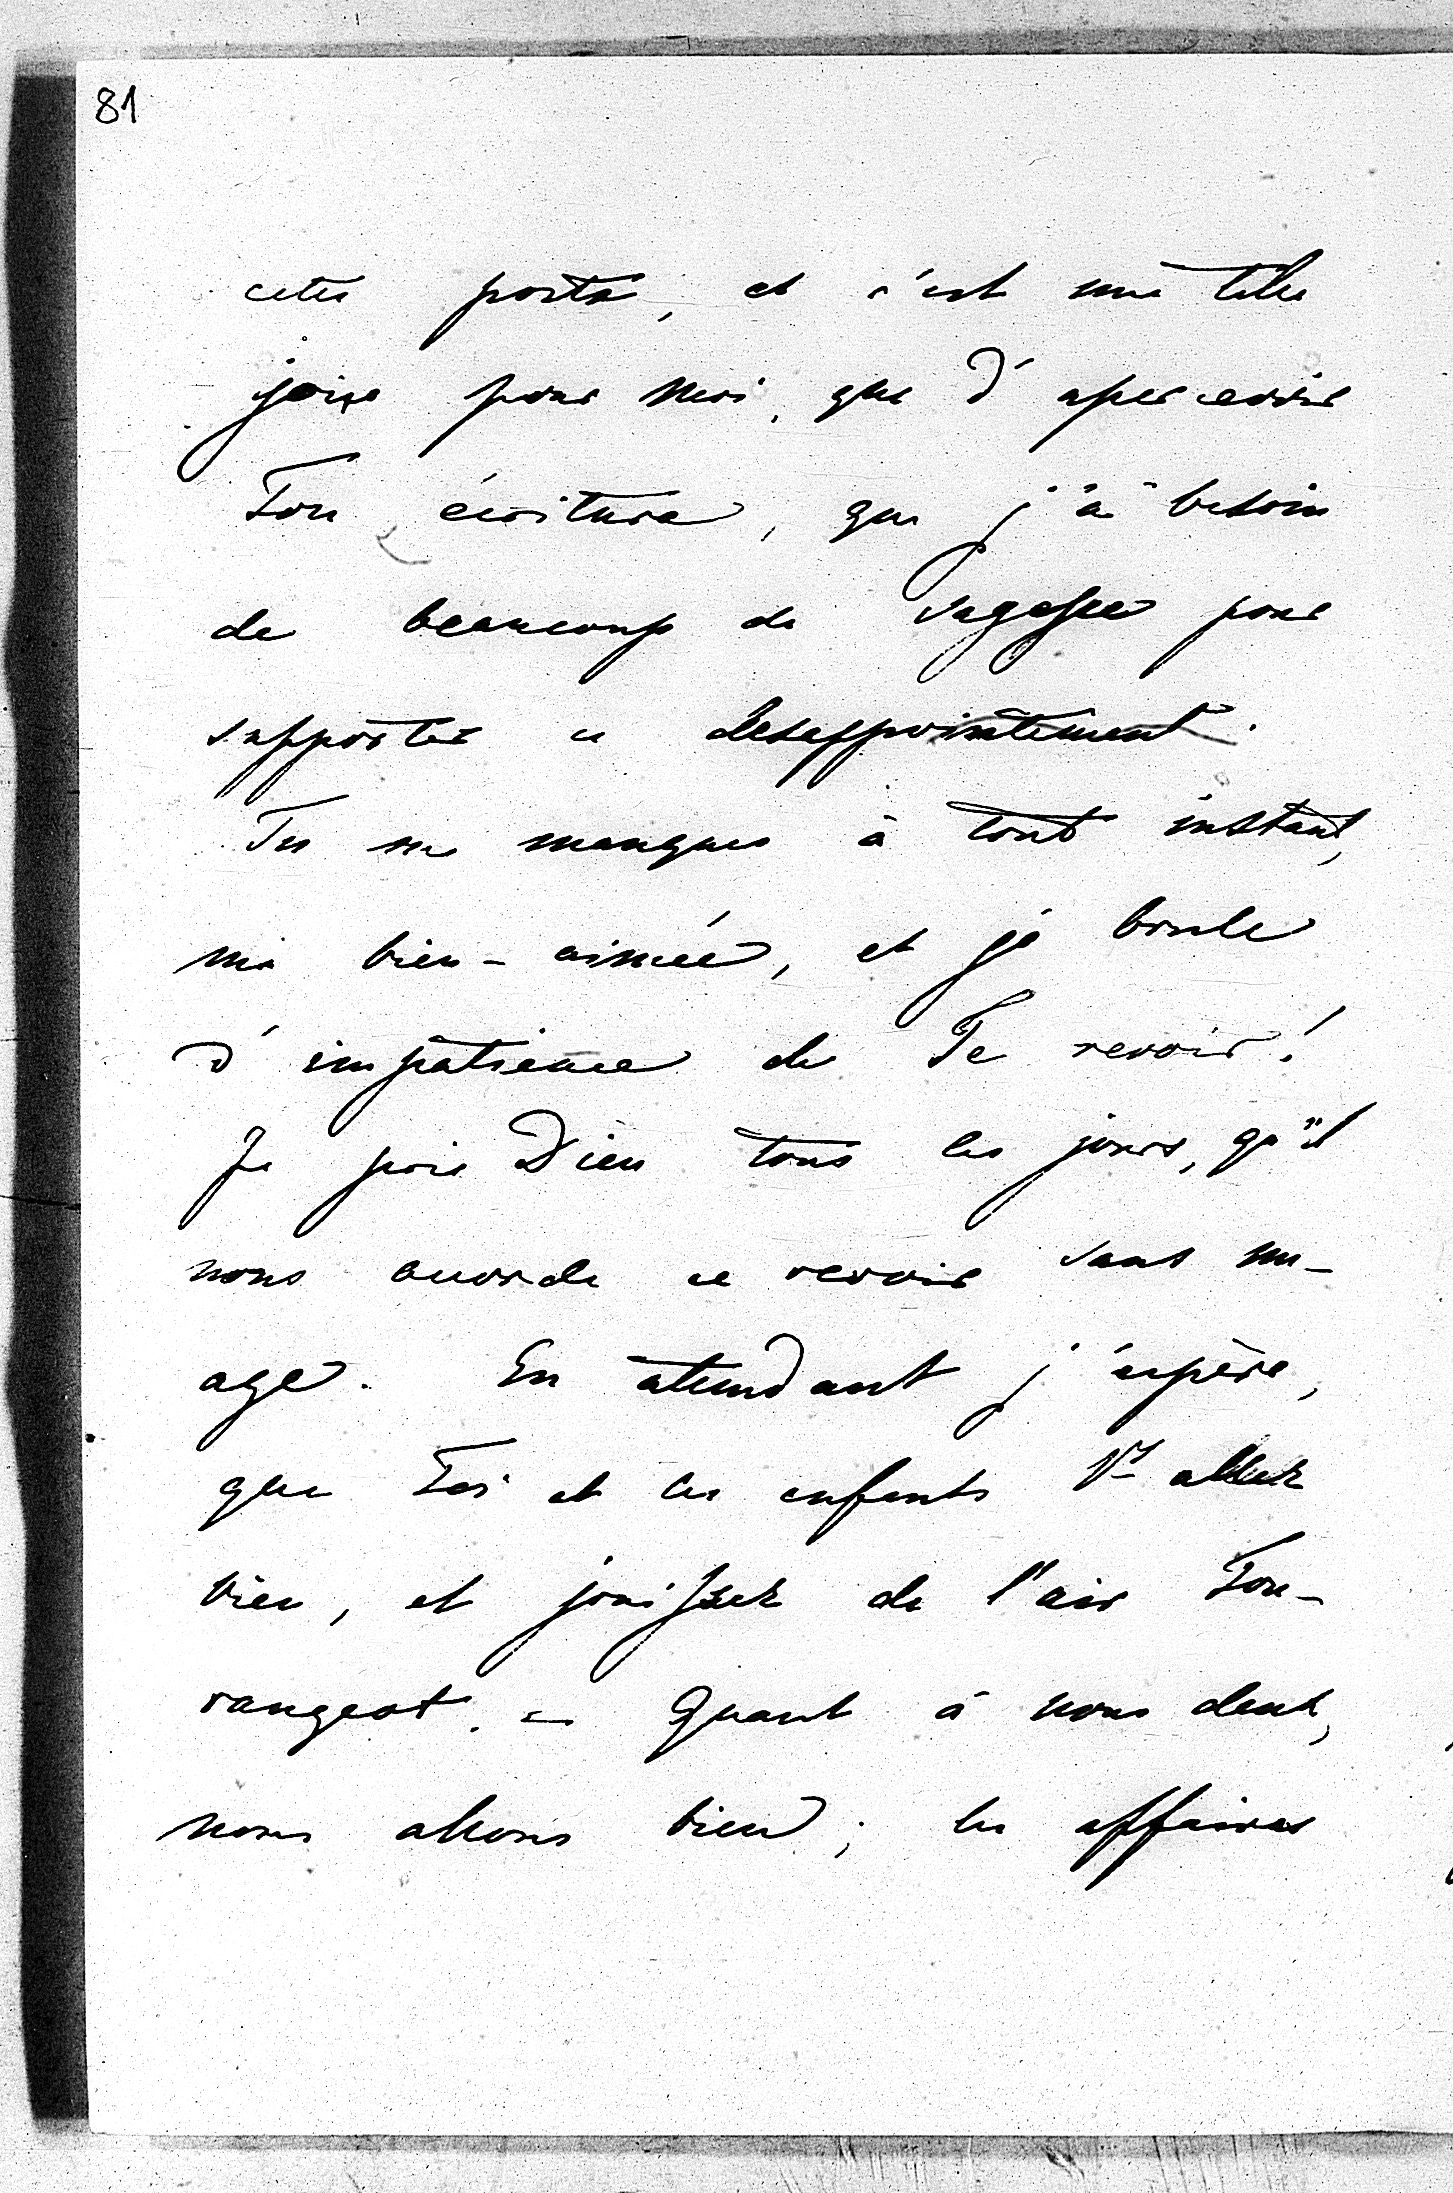 81
cette poste, et c'est une telle
joie pour moi, que d'apercevoir
Ton écriture, que j'ai besoin
de beaucoup de sagesse pour
supporter ce desappointement.
Tu me manques à tout instant,
ma bien-aimée, et je brule
d'impatience de Te revoir!
Je prie Dieu tous les jours, qu'il
nous accorde ce revoir sans nu-
age. En attendant j'espère,
que Toi et les enfants Vs allez
bien, et jouissez de l'air Tou-
rangeot. — Quant à nous deux,
nous allons bien; les affaires